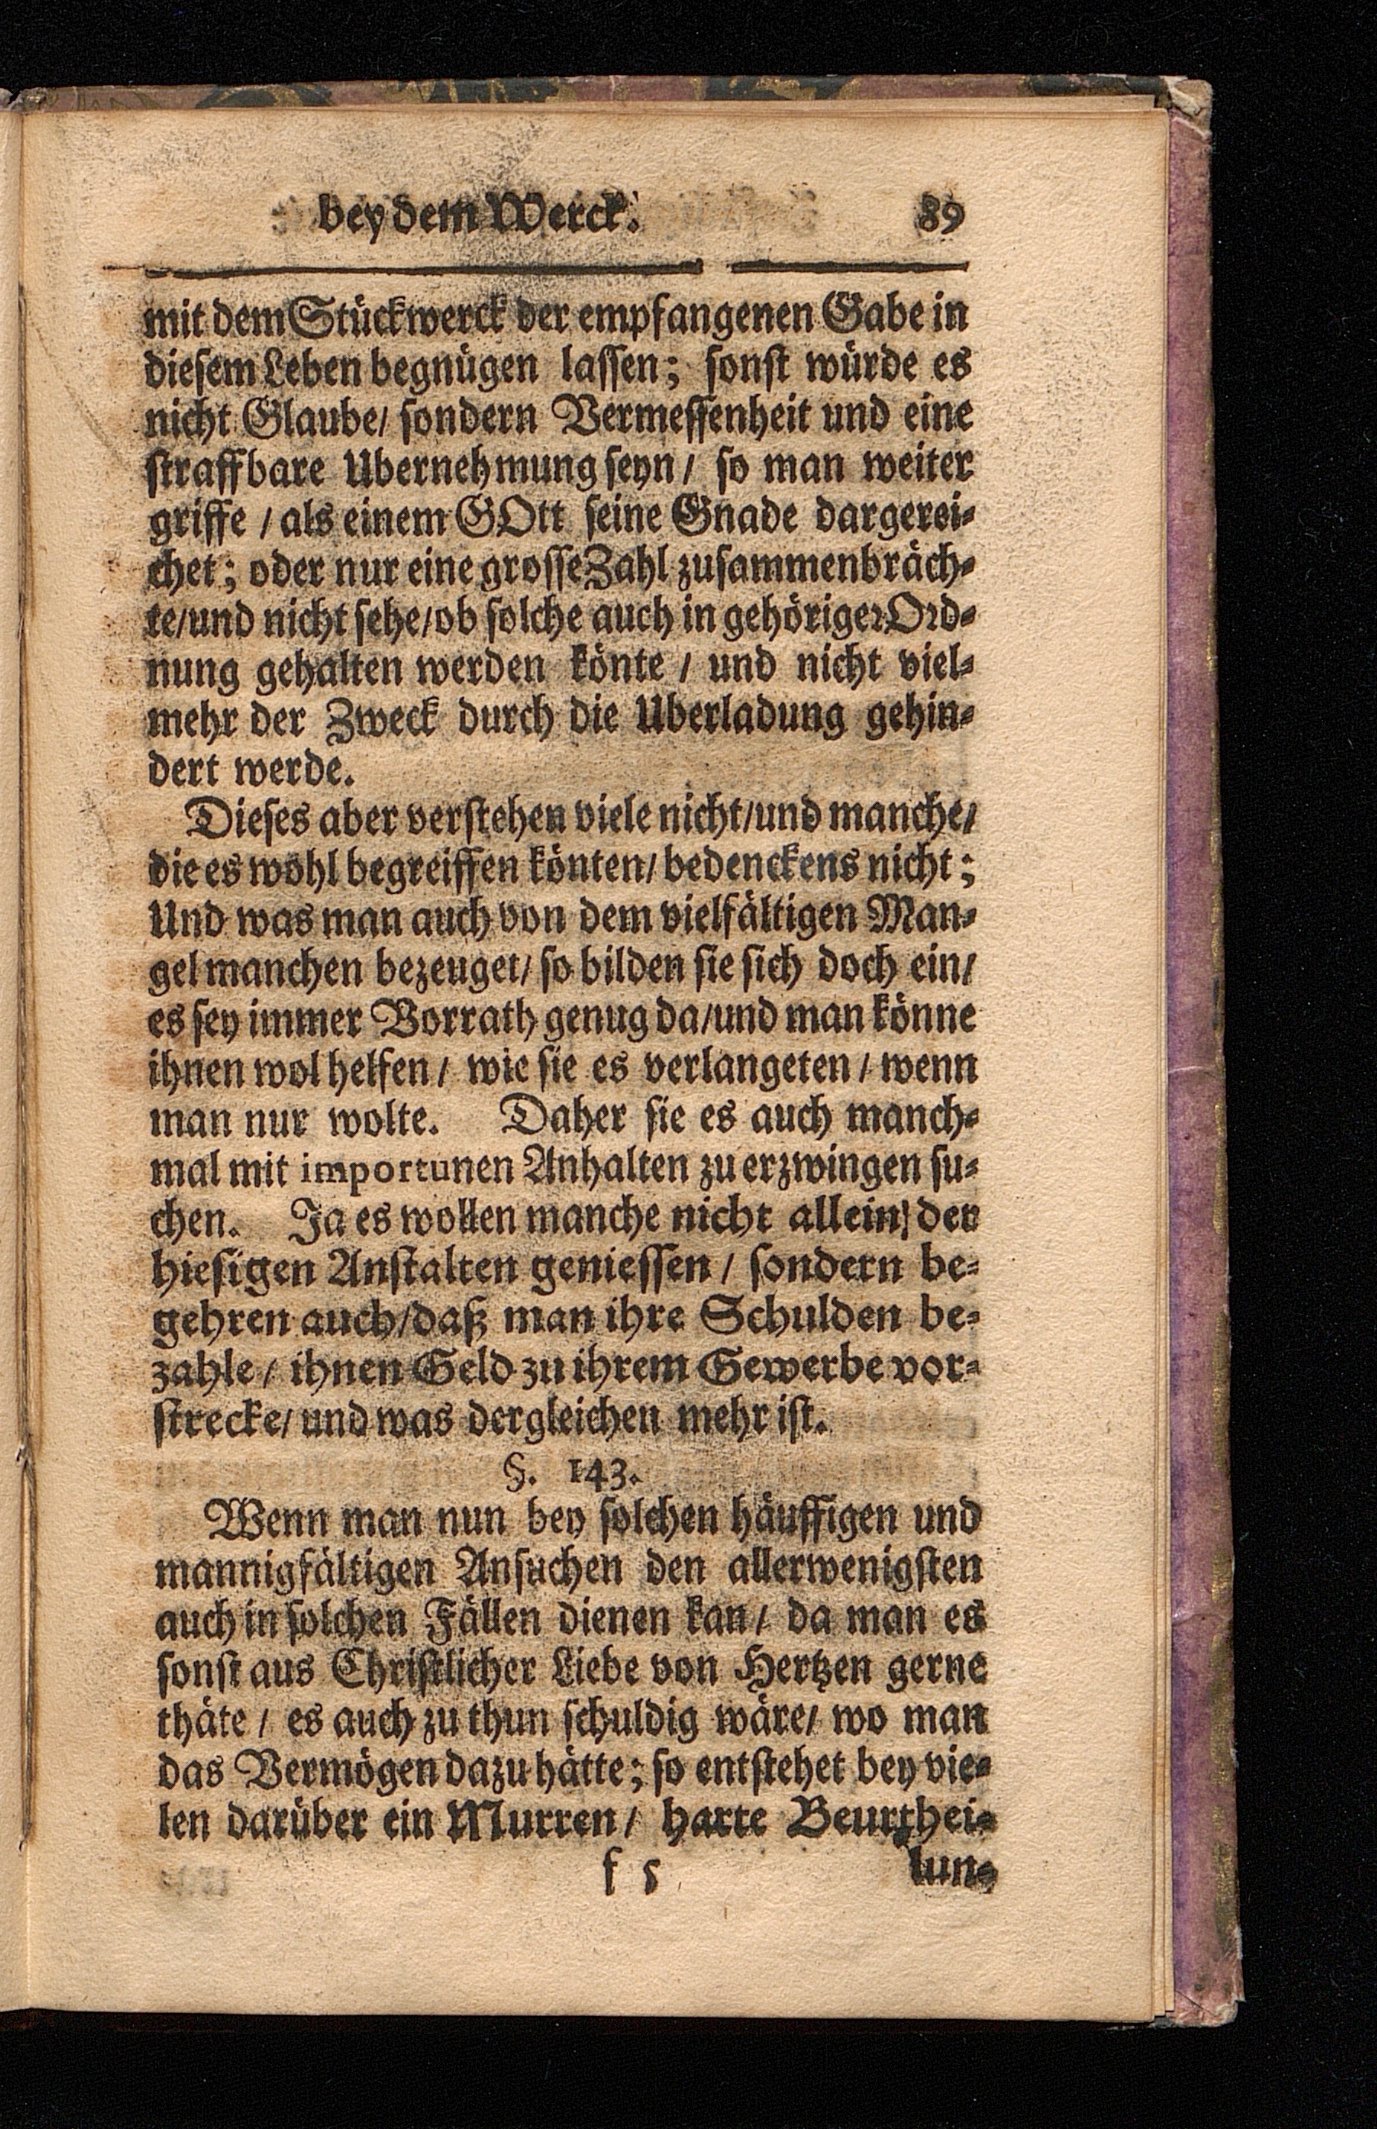 bey dem Werck. 89
mit dem Stückwerck der empfangenen Gabe in
diesem Leben begnügen lassen; sonst würde es
nicht Glaube/ sondern Vermessenheit und eine
straffbare Ubernehmung seyn/ so man weiter
griffe / als einem GOtt seine Gnade dargerei-
chet; oder nur eine grosse Zahl zusammenbräch-
te/und nicht sehe/ob solche auch in gehöriger Ord-
nung gehalten werden könte / und nicht viel-
mehr der Zweck durch die Uberladung gehin-
dert werde.
Dieses aber verstehen viele nicht/und manche/
die es wohl begreiffen könten/ bedenckens nicht;
Und was man auch von dem vielfältigen Man-
gel manchen bezeuget/ so bilden sie sich doch ein/
es sey immer Vorrath genug da/und man könne
ihnen wol helfen/ wie sie es verlangeten / wenn
man nur wolte. Daher sie es auch manch-
mal mit importunen Anhalten zu erzwingen su-
chen. Ja es wollen manche nicht allein der
hiesigen Anstalten geniessen / sondern be-
gehren auch/daß man ihre Schulden be-
zahle / ihnen Geld zu ihrem Gewerbe vor-
strecke/ und was dergleichen mehr ist.
§. 143.
Wenn man nun bey solchen häuffigen und
mannigfältigen Ansuchen den allerwenigsten
auch in solchen Fällen dienen kan/ da man es
sonst aus Christlicher Liebe von Hertzen gerne
thäte / es auch zu thun schuldig wäre/ wo man
das Vermögen dazu hätte; so entstehet bey vie-
len darüber ein Murren/ harte Beurthei-
f 5 lun-